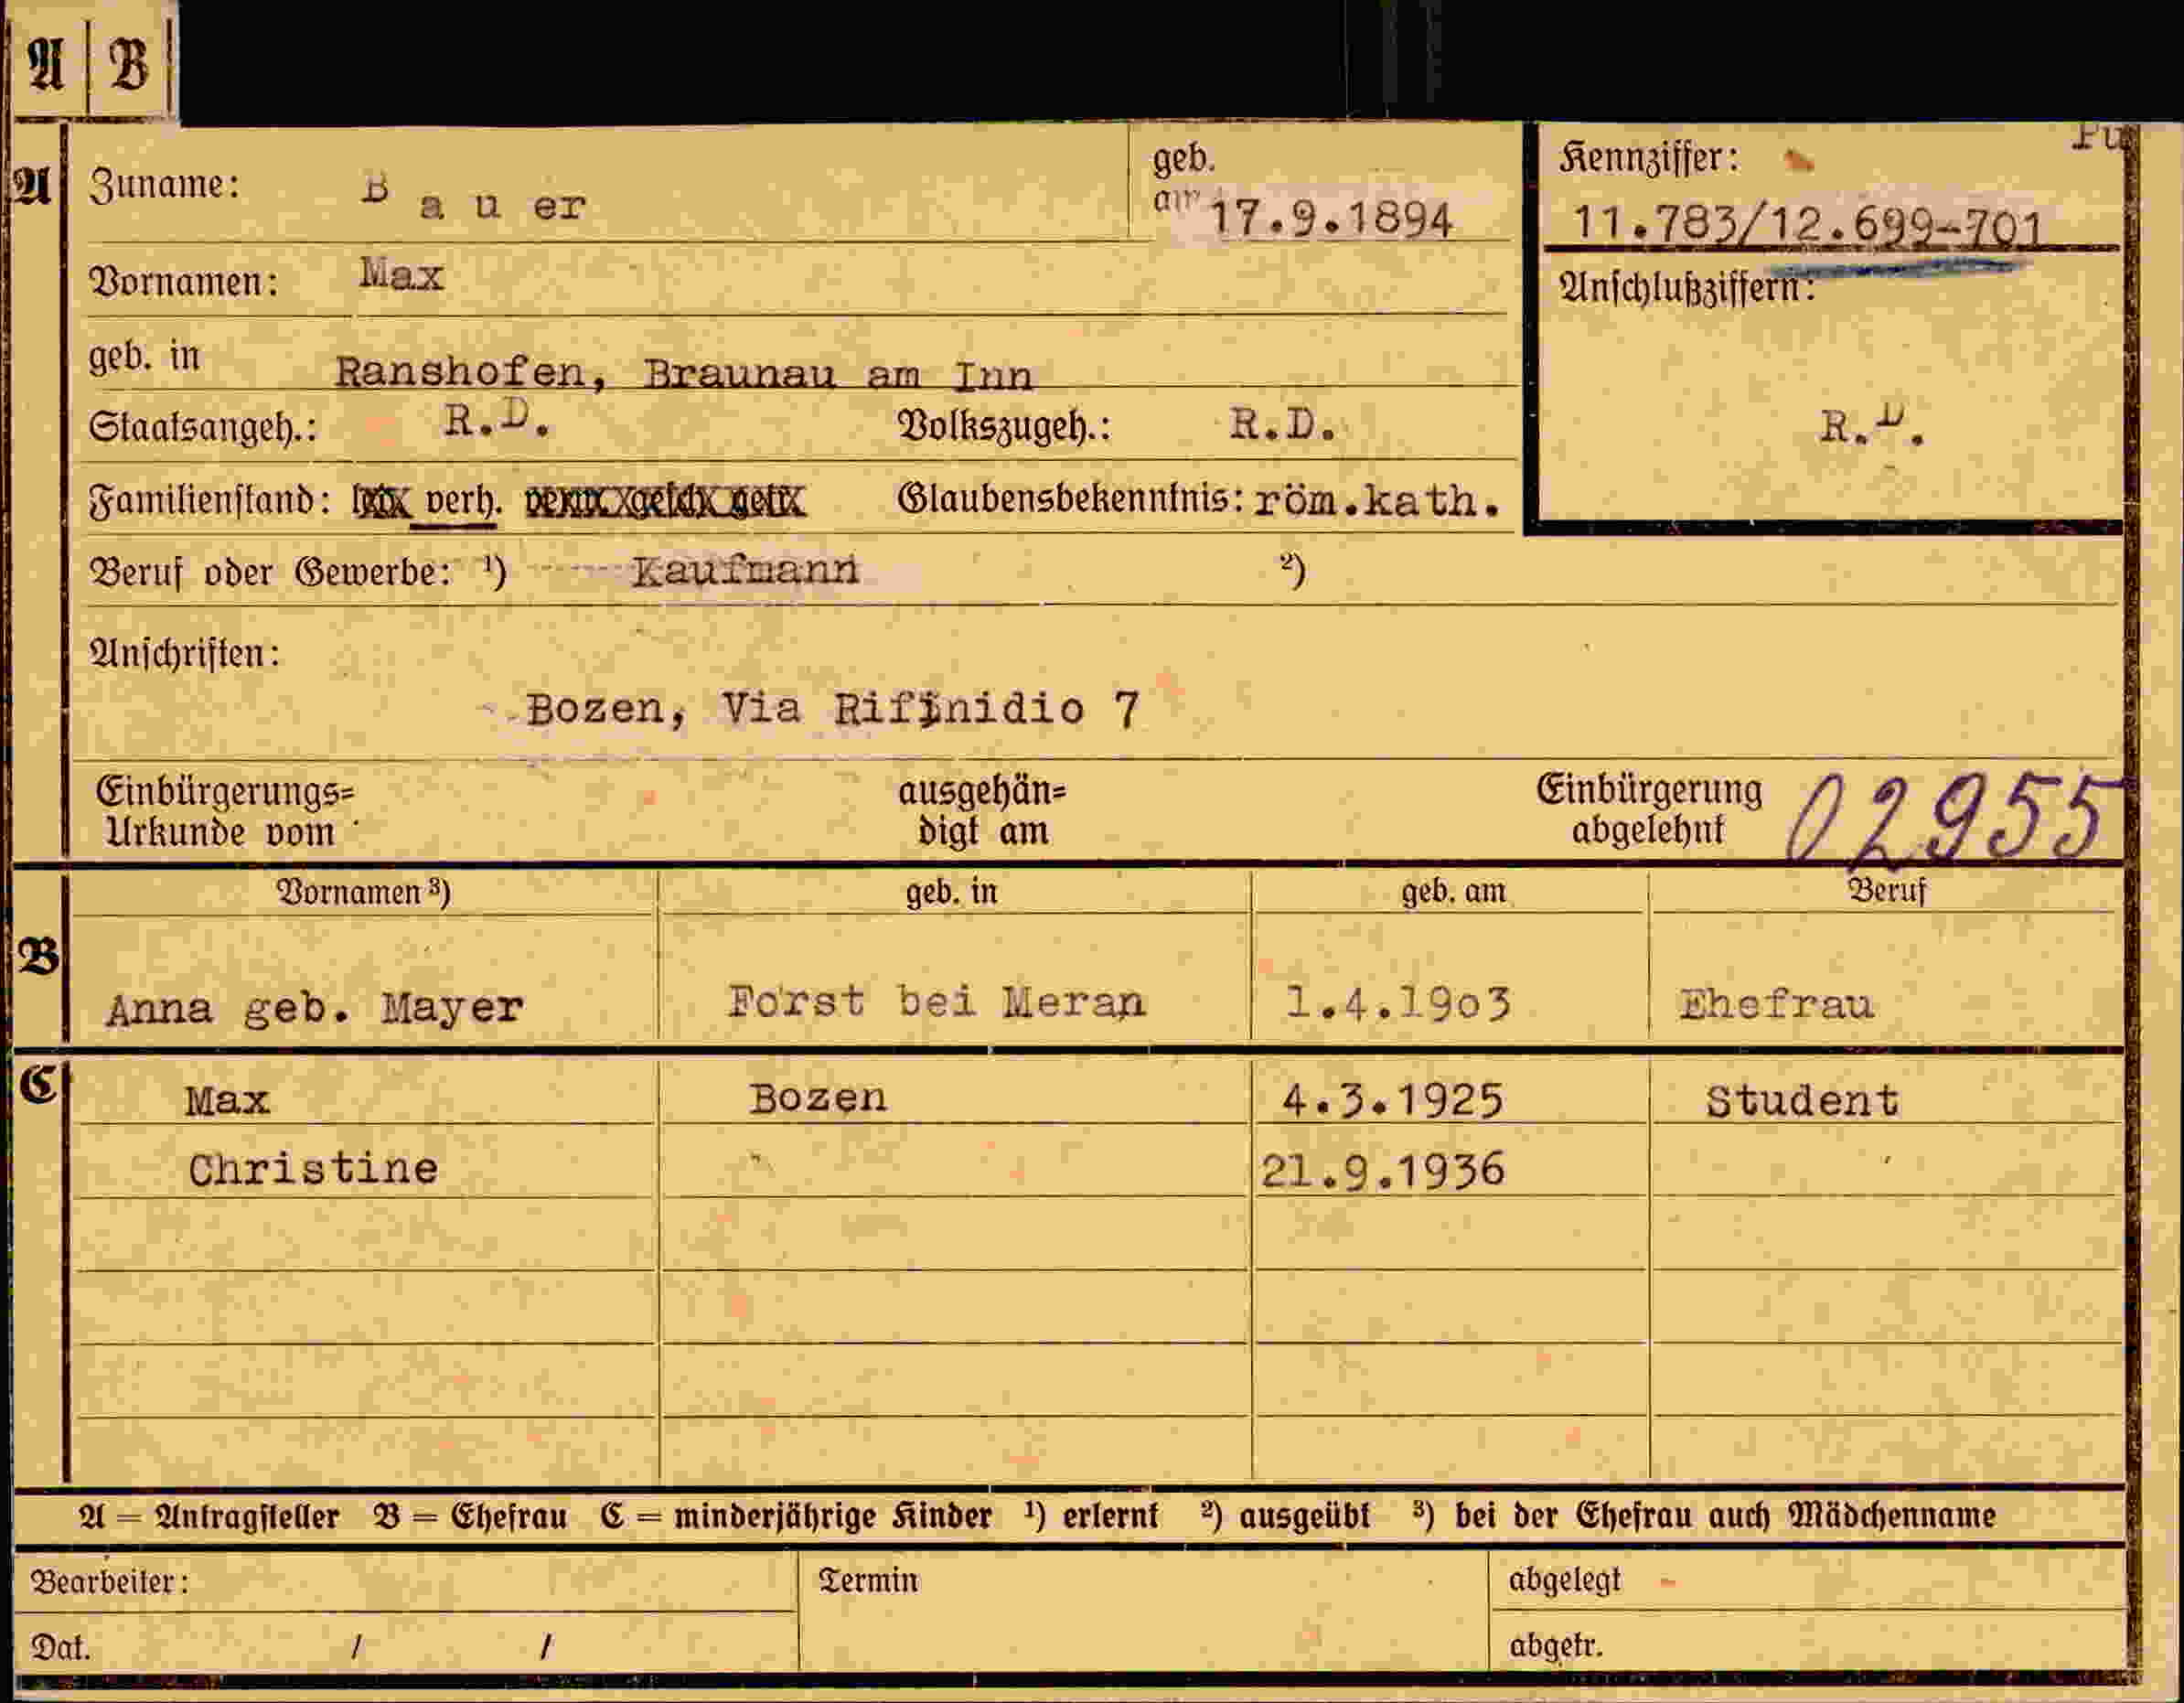 A B
A Zuname: B a u er geb. am 17.9.1894
Kennziffer:
11.783/12.699-701
Vornamen: Max
Anschlußziffern:
geb. in Ranshofen, Braunau am Inn
Staatsangeh.: R.D. Volkszugeh.: R.D.
R.D.
Familienstand: verh. Glaubensbekenntnis: röm.kath.
Beruf oder Gewerbe: ¹) Kaufmann ²)
Anschriften:
Bozen, Via Rifinidio 7
Einbürgerungs= ausgehän= Einbürgerung 02955
Urkunde vom digt am abgelehnt
Vornamen ³) geb. in geb. am Beruf
B
Anna geb. Mayer Forst bei Meran 1.4.1903 Ehefrau
C Max Bozen 4.3.1925 Student
Christine " 21.9.1936
A = Antragsteller B = Ehefrau C = minderjährige Kinder ¹) erlernt ²) ausgeübt ³) bei der Ehefrau auch Mädchenname
Bearbeiter: Termin abgelegt
Dat. / / abgetr.